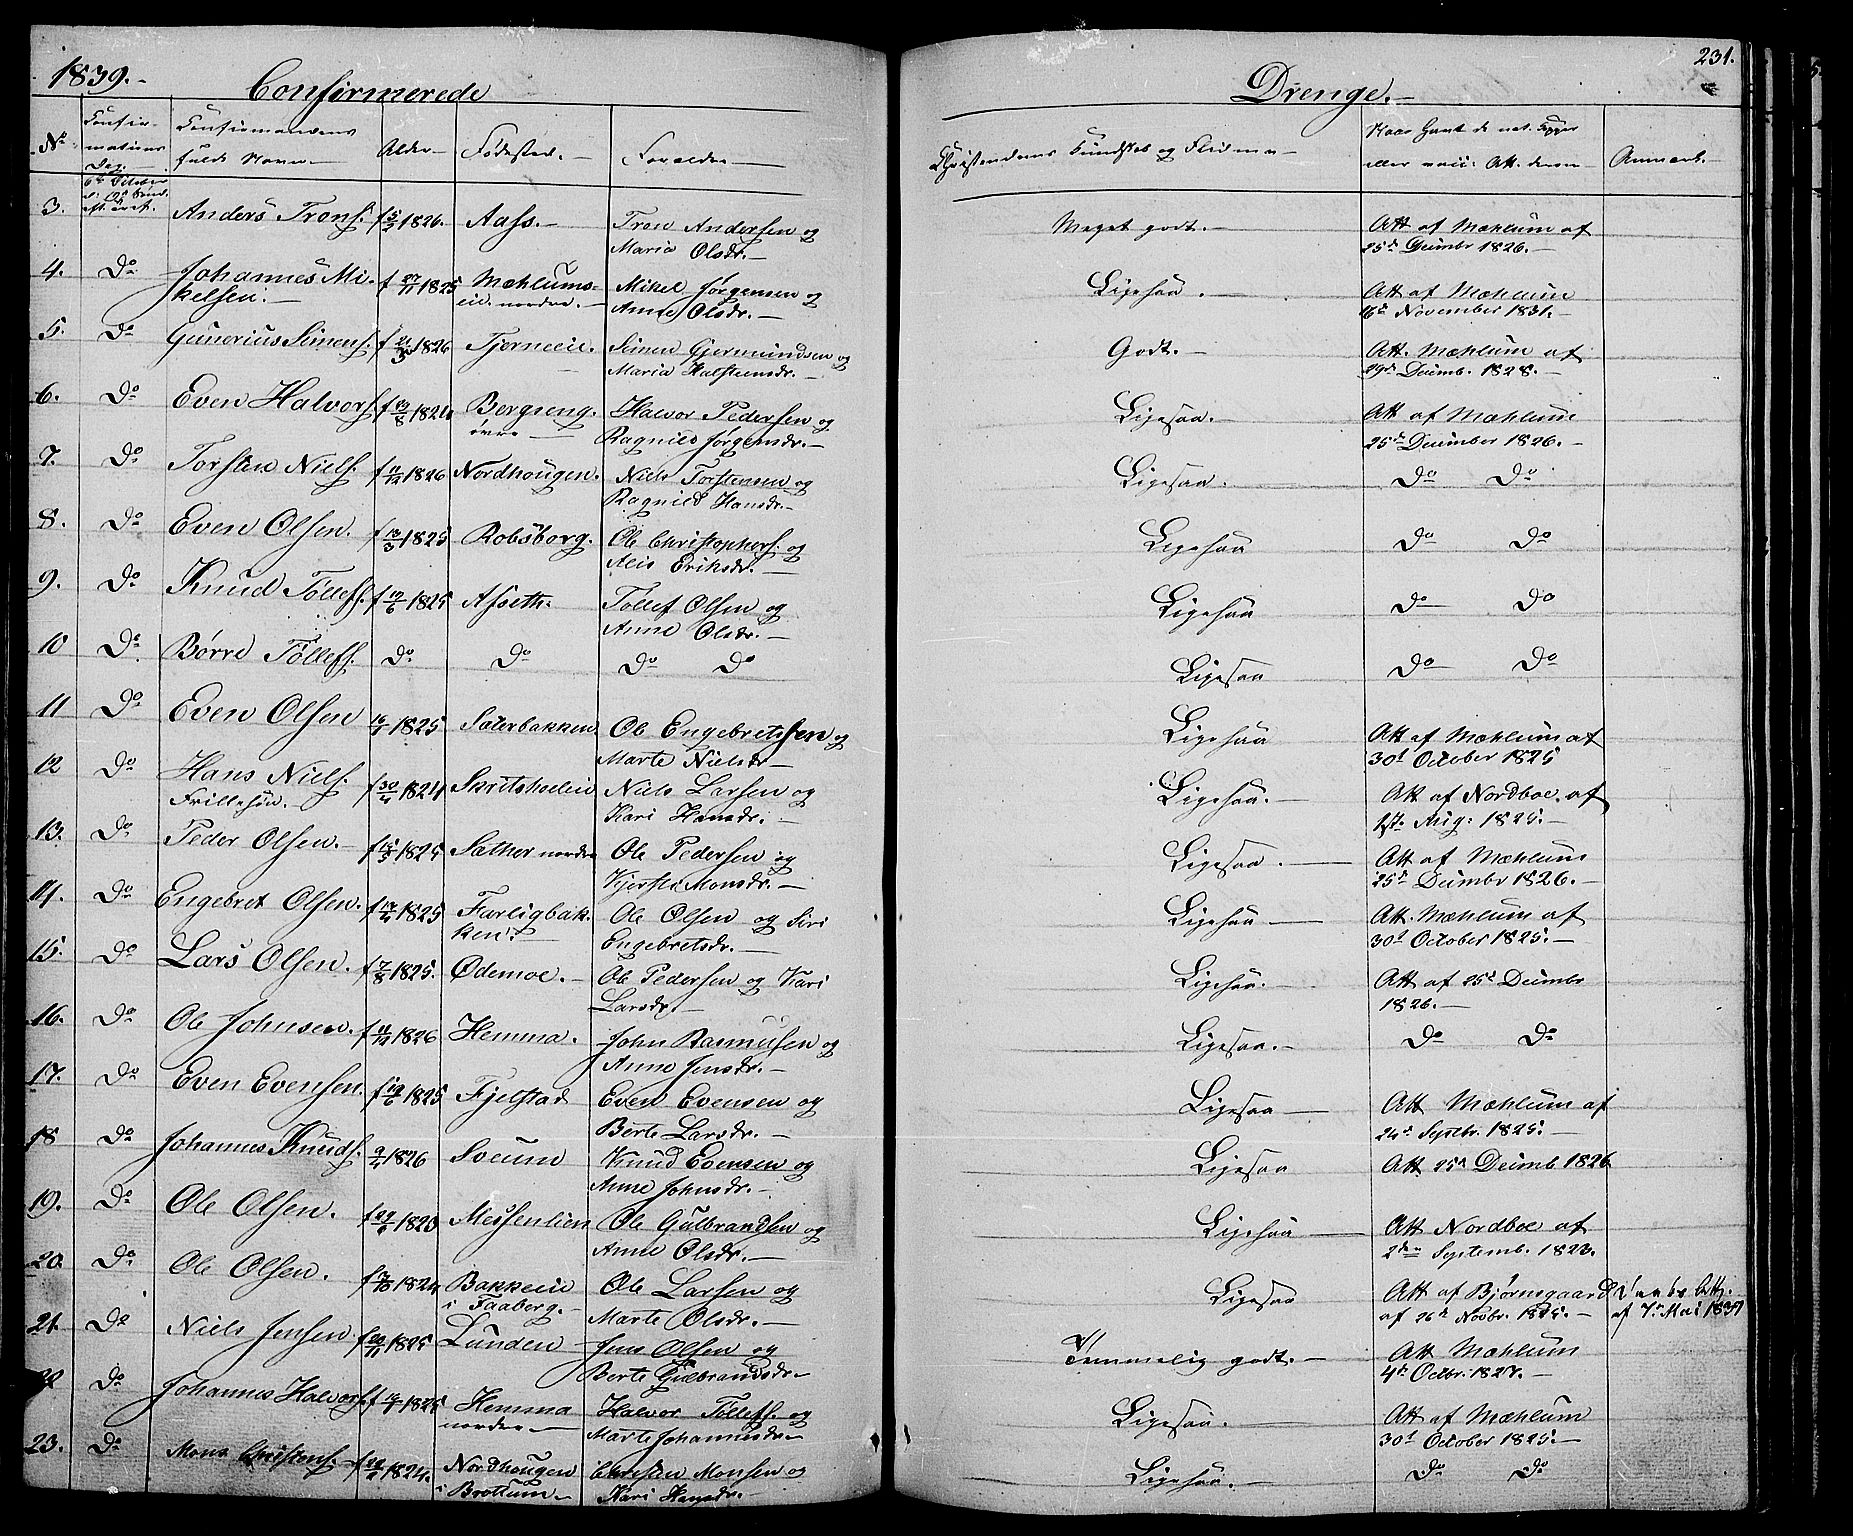 1839.-
Confirmerede
Drenge.-
231.
No
Confir-
mations
Dag.
Confirmandens
fulde Navn.-
Alder-
Fødested.-
Forældre-
Christendoms Kundskab og Flid m.m.-
Naar havt de nat. Kopper
eller vacc: Att. derom
Anmærk.-
6te October
3. Anders Trons. f 5/3 1826. Aass.- Tron Andersen og
Maria Olsdr.-
Meget godt.- Att af Mæhlum af
25de Decembr 1826.-
4. Do Johannes Mi-
kelsen.- f 27/11 1825 Mæhlums-
eie nordre.- Mikel Jørgensen og
Anne Olsdr.-
Ligesaa.- Att af Mæhlum
16de November 1831.-
5. Do Gunerius Simens. f 21/3 1826 Tjerneeie. Simen Gjermundsen og
Maria Halsteensdr.-
Godt.- Att. Mæhlum af
29de Decemb. 1828.-
6. Do Even Halvors. f 29/8 1824 Bergseng.
øvre- Halvor Pedersen og
Ragnild Jørgensdr.-
Ligesaa.- Att af Mæhlum
25de December 1826.-
7. Do Torsten Niels. f 11/12 1826 Nordhougen. Niels Torstensen og
Ragnild Hansdr.-
Ligesaa. Do Do
8. Do Even Olsen. f 13/3 1825 Robsborg. Ole Christophers. og
Eriksdr.-
Ligesaa Do Do
9. Do Knud Tollefs. f 19/6 1825 Asseth. Tollef Olsen og
Anne Olsdr.-
Ligesaa Do Do
10 Do Børre Tøllefs. Do Do Do Do
Ligesaa Do Do
11 Do Even Olsen 16/1 1825 Sæterbakken Ole Engebretssen og
Marte Nielsdr-
Ligesaa Att af Mæhlum af
30t October 1825
12 Do Hans Niels.
Frillesøn. f 30/4 1824 Niels Larsen og
Kari Hansdr.-
Ligesaa.- Att af Nordboe. af
1ste Aug: 1825.-
13. Do Peder Olsen.- f 15/5 1825 Sæther nordre Ole Pedersen og
Kjersti Monsdr.-
Ligesaa.- Att af Mæhlum
25de Decmbr 1826.-
14. Do Engebret Olsen. f 17/4 1825 Farligbak-
ken.- Ole Olsen og Siri
Engebretsdr.-
Ligesaa- Att. Mæhlum af
30t October 1825.-
15. Do Lars Olsen. f 7/8 1825. Ødemoe.- Ole Pedersen og Kari
Larsdr.-
Ligesaa.- Att af 25de Decmbr
1826.-
16. Do Ole Johnsen. f 11/12 1826 Hemma. John Rasmusen og
Anne Jensdr.-
Ligesaa.- Do Do
17. Do Even Evensen. f 19/6 1825 Fjelstad Even Evensen og
Berte Larsdr.-
Ligesaa- Att Mæhlum af
24de Septbr. 1825.-
18 Do Johannes Knuds. 9/4 1826 Sveum Knud Evensen og
Anne Johnsdr.-
Ligesaa Att 25de Decemb. 1826
19. Do Ole Olsen. f 29/6 1823 Messenlien Ole Gulbrandsen og
Anne Olsdr.-
Ligesaa- Att Nordboe af
2den Septemb. 1823.
20. Do Ole Olsen. f 7/10 1824 Bakkeeie
i Faaberg.- Ole Larsen og
Marte Olsdr.-
Ligesaa Att af Bjørnsgaard
af 26de Novbr. 1825.- Daabsatt.
af 7de Mai 1839
21. Do Niels Jensen. f 20/11 1825 Lunden Jens Olsen og
Berte Gulbrandsdr-
Temmelig godt.- Att Mæhlum
4de Octbr. 1827.-
22 Do Johannes Halvors. f 16/1 1825 Hemma
nordre- Halvor Tøllefs. og
Marte Johannesdr-
Ligesaa.- Att af Mæhlum
30t October 1825.-
23. Do Mons Christens.- f 1824. Nordhougen
i Brøttum- Christen Monsen og
Kari Hansdr.-
Ligesaa.- Do Do